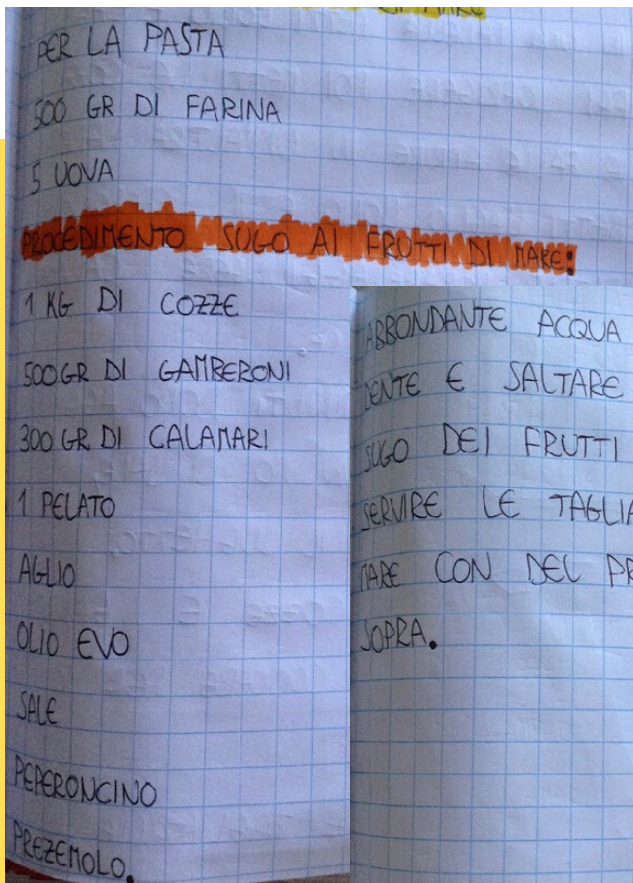 DI MARE
PER LA PASTA
500 GR DI FARINA
5 UOVA
PROCEDIMENTO SUGO AI FRUTTI DI MARE:
1 KG DI COZZE
500 GR DI GAMBERONI
300 GR DI CALAMARI
1 PELATO
AGLIO
OLIO EVO
SALE
PEPERONCINO
PREZEMOLO.
ABBONDANTE ACQUA
DENTE E SALTARE
SUGO DEI FRUTTI
SERVIRE LE TAGLIA
MARE CON DEL PR
SOPRA.